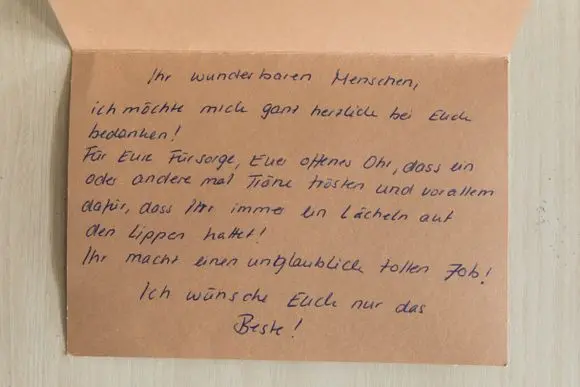 Ihr wunderbaren Menschen,
ich möchte mich ganz herzlich bei Euch
bedanken!
Für Eure Fürsorge, Euer offenes Ohr, dass ein
oder andere mal Träne trösten und vor allem
dafür, dass Ihr immer ein Lächeln auf
den Lippen hattet!
Ihr macht einen unglaublich tollen Job!
Ich wünsche Euch nur das
Beste!